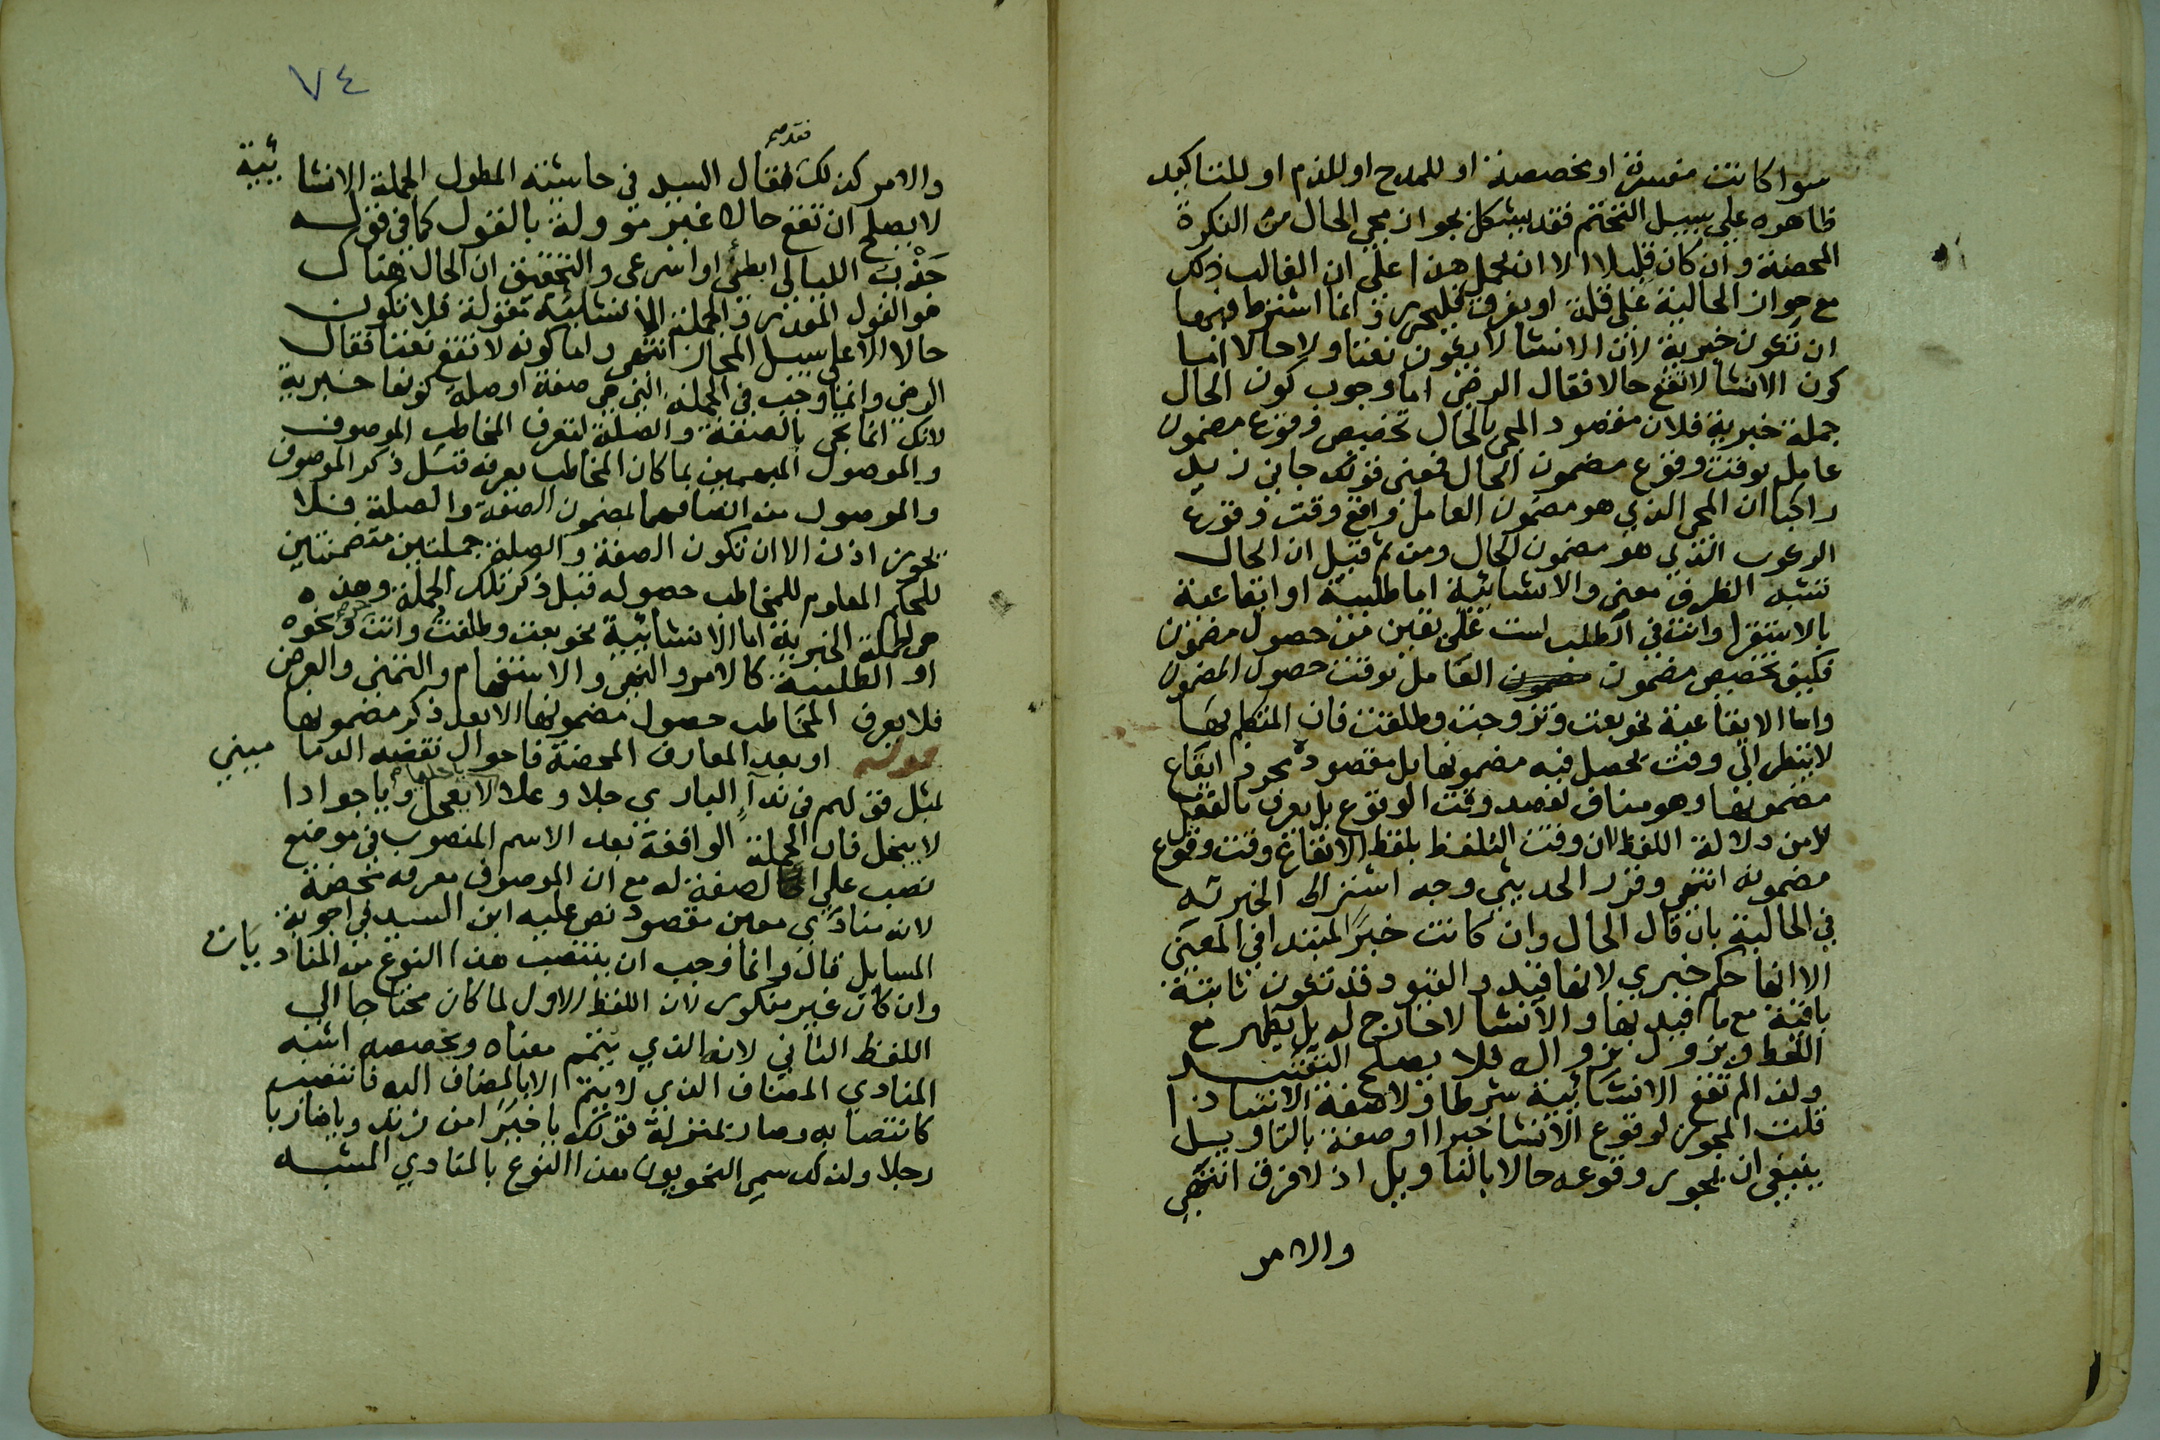 سوا كانت مفسرة او مخصصة او للمدح او للذم او للتاكيد
ظاهره علي سبيل التحتم فقد يشكل بجواز مجي الحال من النكرة
المحضة وان كان قليلا الا ان يحمل هذا علي ان الغالب ذلك
مع جواز الحالية علي قلة او يفرق فليحرر وانما اشترط فيها
ان تكون خبرية لان الانشا لا يكون نعتا ولا حالا اما
كون الانشا لا تقع حالا فقال الرضي اما وجوب كون الحال
جملة خبرية فلان مقصود المجي بالحال تخصيص وقوع مضمون
عامله بوقت وقوع مضمون الحال فمعني قولك جاني زيد
راكبا ان المجي الذي هو مضمون العامل واقع وقت وقوع
الركوب الذي هو مضمون الحال ومن ثم قيل ان الحال
تشبه الظرف معني والانشائية اما طلبية او ايقاعية
بالاستقرا وانت في الطلب لست علي يقين من حصول مضمون
فكيف تخصيص مضمون العامل بوقت حصول المضمون
واما الايقاعية نحو بعت وتزوجت وطلقت فان المتكلم بها
لا ينظر الي وقت يحصل فيه مضمونها بل مقصوده مجرد ايقاع
مضمونها وهو مناف لقصد وقت الوقوع بل يعرف بالعقل
لا من دلالة اللفظ ان وقت التلفظ بلفظ الايقاع وقت وقوع
مضمونه انتهي وقرر الحديثي وجه اشتراط الخبرية
في الحالية بان قال الحال وان كانت خبر المبتدا في المعني
الا انها حكم خبري لانها قيد والقيود قد تكون ثابتة
باقية مع ما قيد بها والانشا لا خارج له بل يظهر مع
اللفظ ويزول بزواله فلا يصلح التقييد
ولذا لم تقع الانشائية شرطا ولا صفة الانتها اذا
قلت المجوز لوقوع الانشا خبرا او صفة بالتاويل
ينبغي ان يجوز وقوعه حالا بالتاويل اذ لا فرق انتهي
والامر
٧٤
والامر كذلك فقد صرح فقال السيد في حاشية المطول الجملة الانشائية
لا يصلح ان تقع حالا غير مؤولة بالقول كما في قوله
جذب الليالي ابطئي او اسرعي والتحقيق ان الحال هناك
هو القول المقدر والجملة الانشائية مقولة فلا تكون
حالا الا علي سبيل المجاز انتهي واما كونه لا تقع نعتا فقال
الرضي وانما وجب في الجملة التي هي صفة او صلة كونها خبرية
لانك انما تجي بالصفة والصلة لتعرف المخاطب الموصوف
والموصول المبهمين بما كان المخاطب يعرفه قبل ذكر الموصوف
والموصول من اتصافهما بمضمون الصفة والصلة فلا
يجوز اذن الا ان تكون الصفة والصلة جملتين متضمنتين
للحكم المعلوم للمخاطب حصوله قبل ذكر تلك الجملة وهذه
هي الجملة الخبرية اما الانشائية نحو بعت وطلقت وانت حر ونحوه
او الطلبية كالامر والنهي والاستفهام والتمني والعرض
فلا يعرف المخاطب حصول مضمونها الا بعد ذكر مضمونها
قوله او بعد المعارف المحضة فاحوال نقضه الدماميني
بمثل قولهم في ندا الباري جلا وعلا يا حليما لا يعجل ويا جوادا
لا يبخل فان الجملة الواقعة بعد الاسم المنصوب في موضع
نصب علي الصفة له مع ان الموصوف معرفه محضة
لانه منادي معين مقصود نص عليه ابن السيد في اجوبة
المسايل قال وانما وجب ان ينتصب هذا النوع من المناديات
وان كان غير منكور لان اللفظ الاول لما كان محتاجا الي
اللفظ الثاني لانه الذي يتمم معناه ويخصصه اشبه
المنادي المضاف الذي لا يتم الا بالمضاف اليه فانتصب
كانتصابه وصار بمنزلة قولك يا خيرا من زيد ويا ضاربا
رجلا ولذلك سمي النحويون هذا النوع بالمنادي المشبه